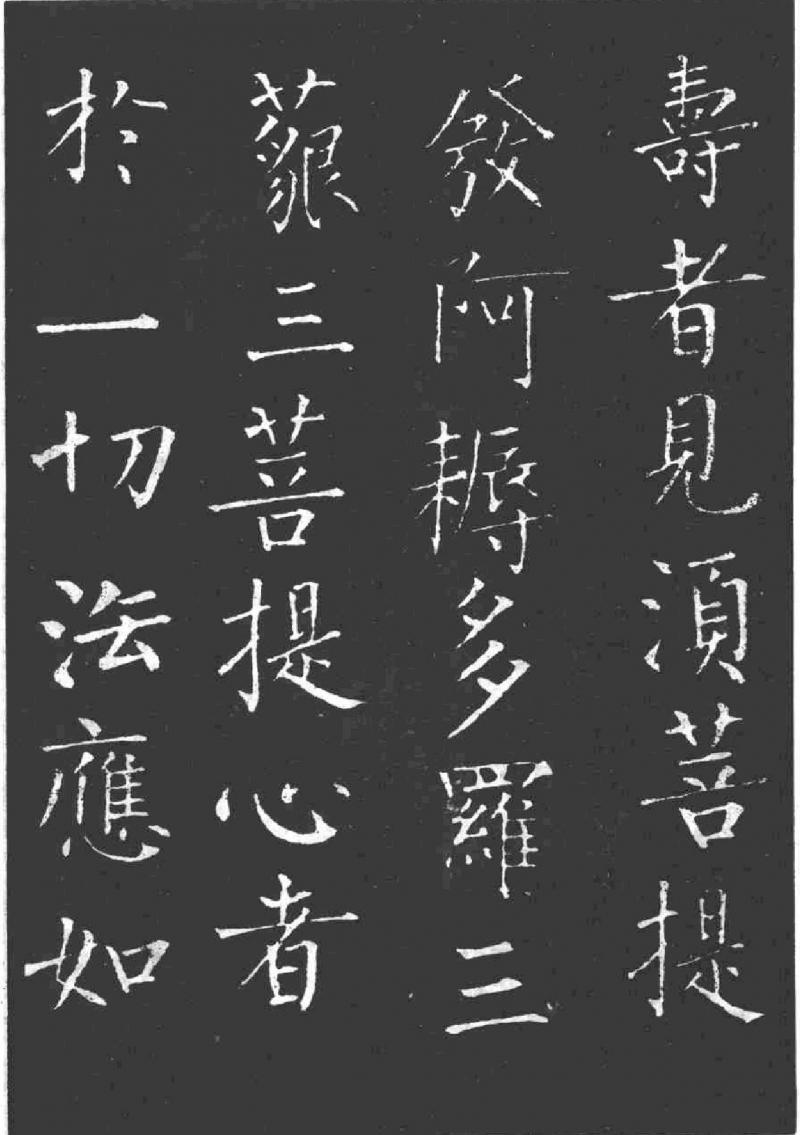 壽者見須菩提
發阿耨多羅三
藐三菩提心者
於一切法應如